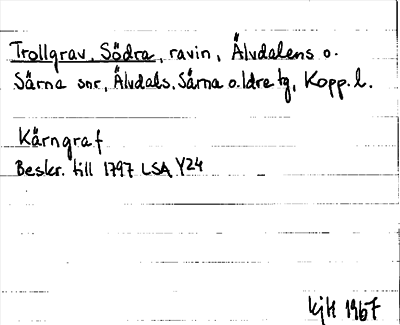 Trollgrav, Södra, ravin, Älvdalens o.
Särna snr, Älvdals, Särna o. Idre tg, Kopp. l.
Kärngraf
Beskr. till 1797 LSA Y24
kjH 1967